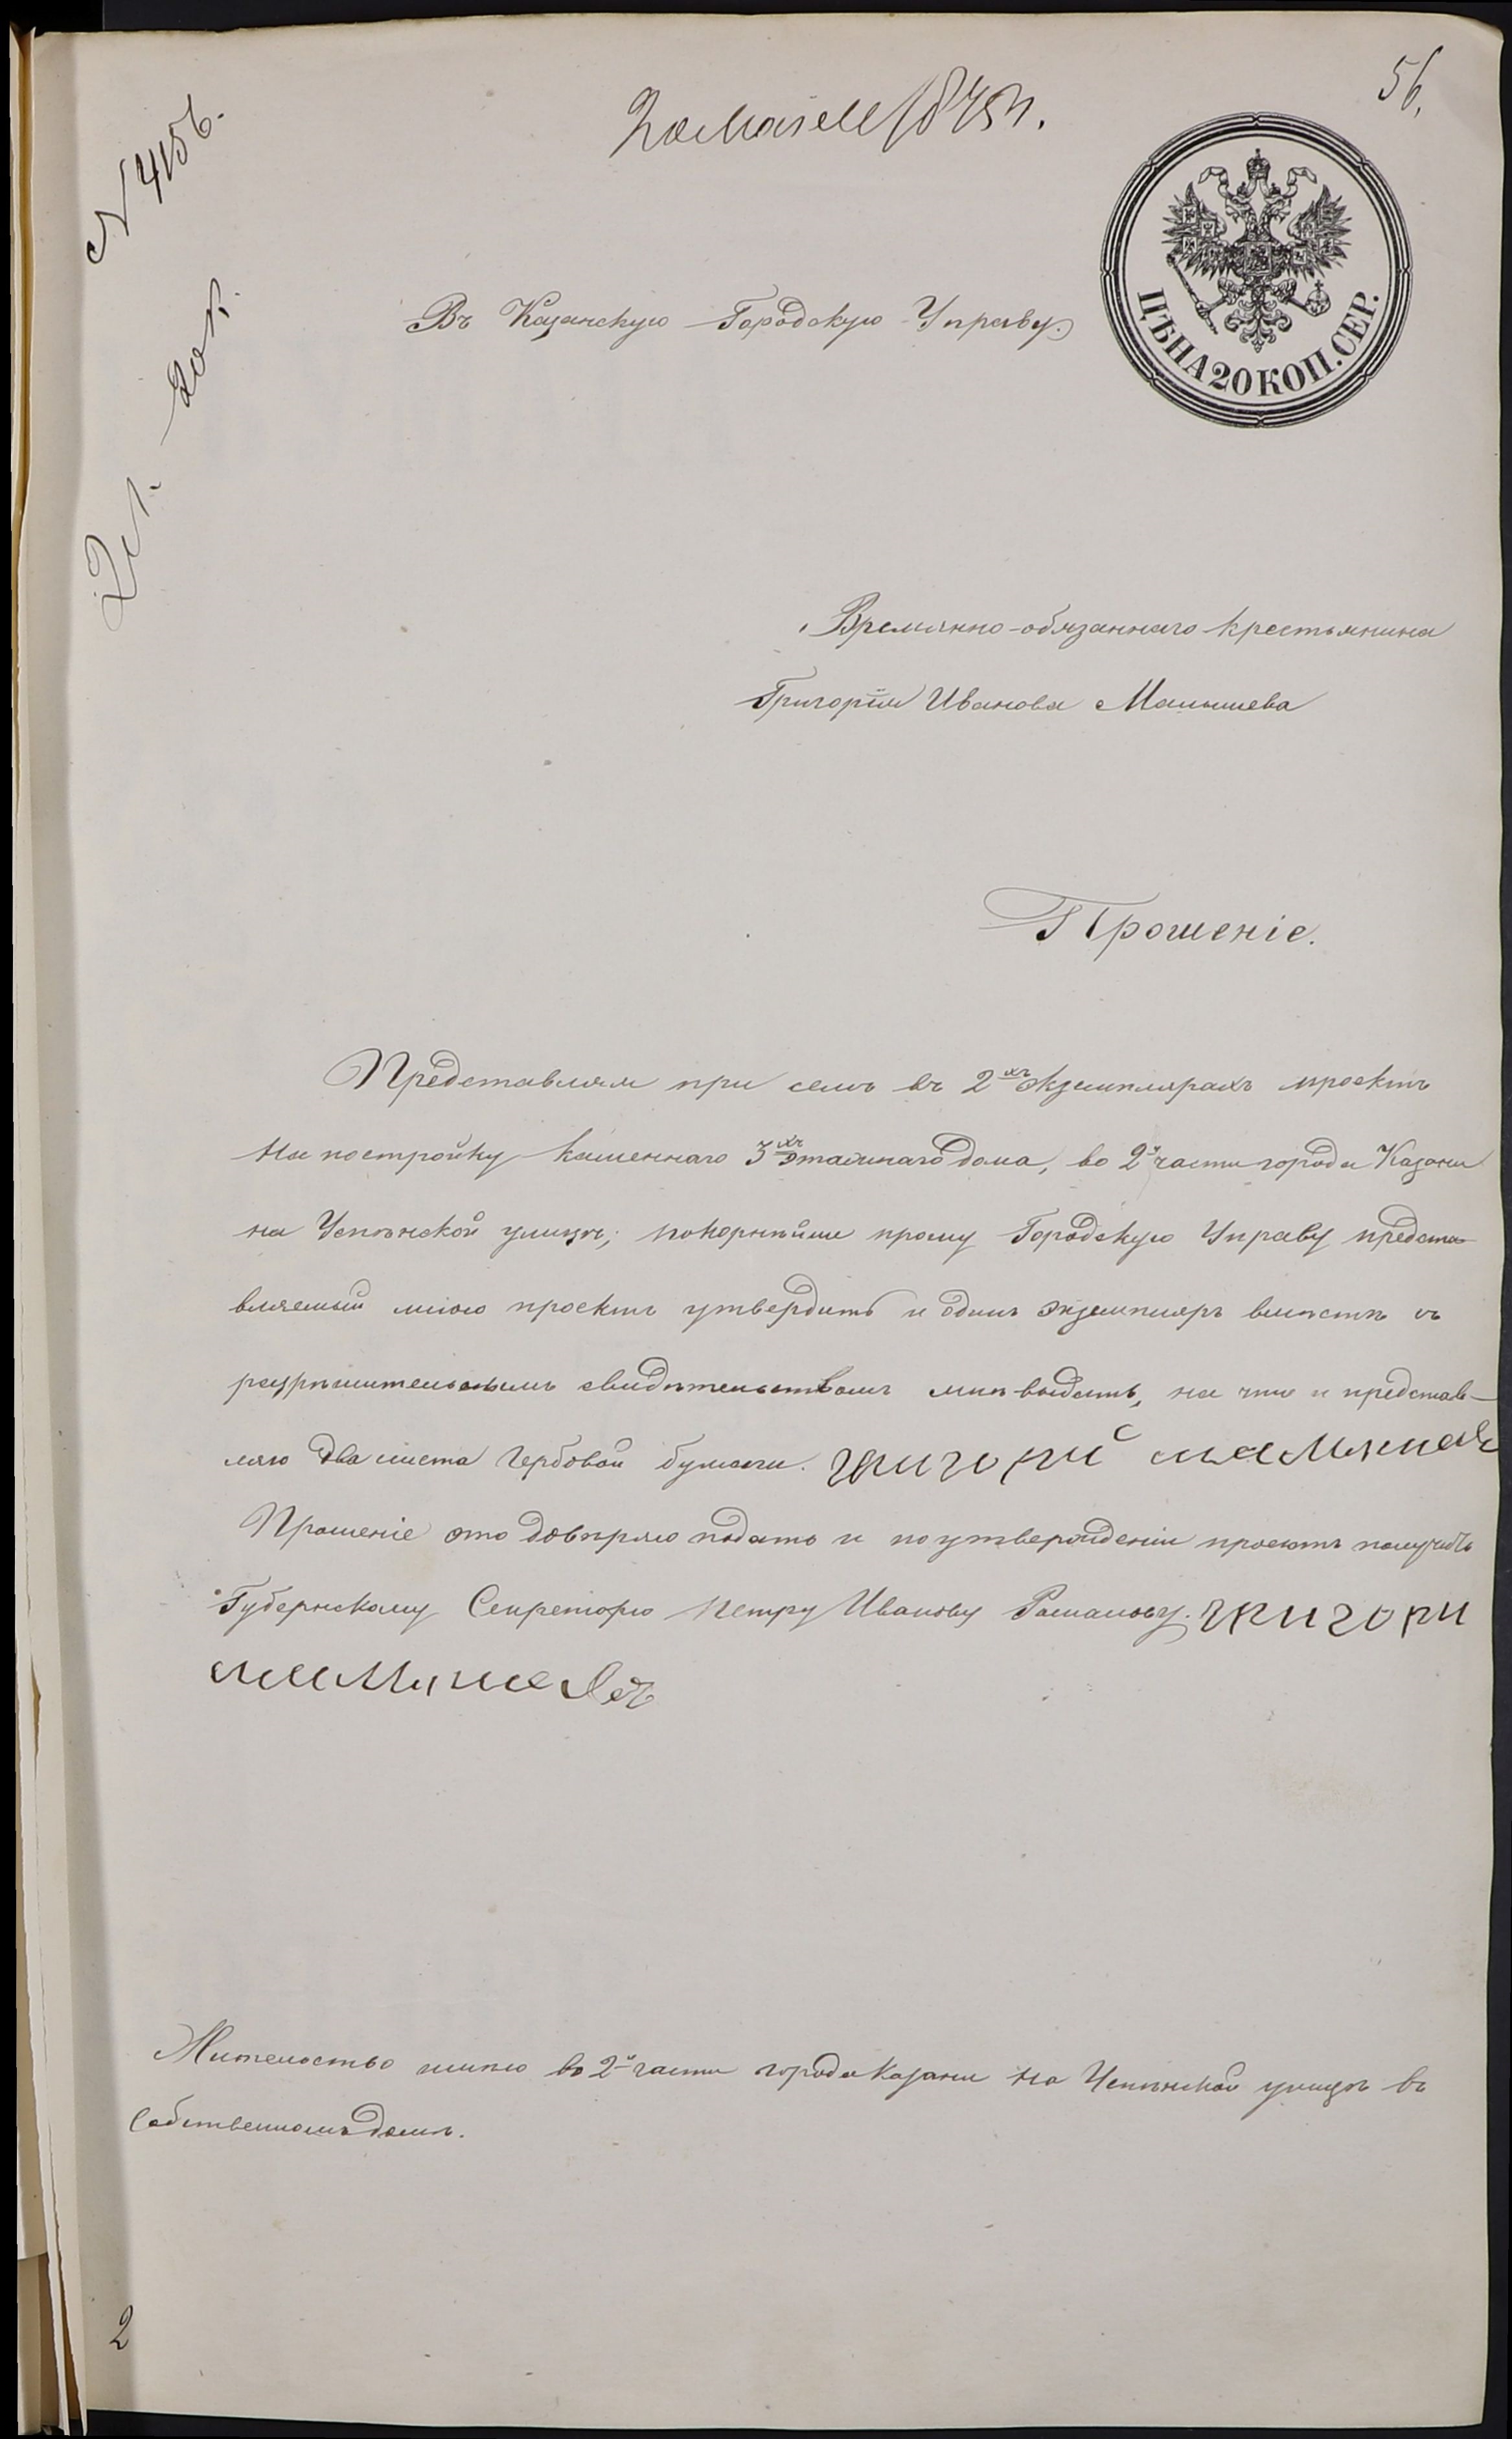 56.
2го Мая 1875 г.
N 4156.
ЦѢНА 20 КОП. СЕР.
Въ Казанскую Городскую Управу.
2 л.
Времянно-обязаннаго крестьянина
Григорія Иванова Малышева
Прошеніе.
Представляя при семъ въ 2хъ экземплярахъ проектъ
на постройку каменнаго 3хъ этажнаго дома, во 2й части города Казани
на Успѣнской улицѣ; покорнѣйше прошу Городскую Управу предста-
вляемый мною проектъ утвердить и одинъ экземпляръ вмѣстѣ съ
разрѣшительнымъ свидѣтельствомъ мнѣ выдать, на что и представ-
ляю два листа гербовой бумаги. григорий
Прошеніе это довѣряю подать и по утвержденіи проектъ получить
Губернскому Секретарю Петру Иванову Романову. григори
малышевъ
Жительство имѣю во 2й части города Казани на Успѣнской улицѣ въ
собственномъ домѣ.
2